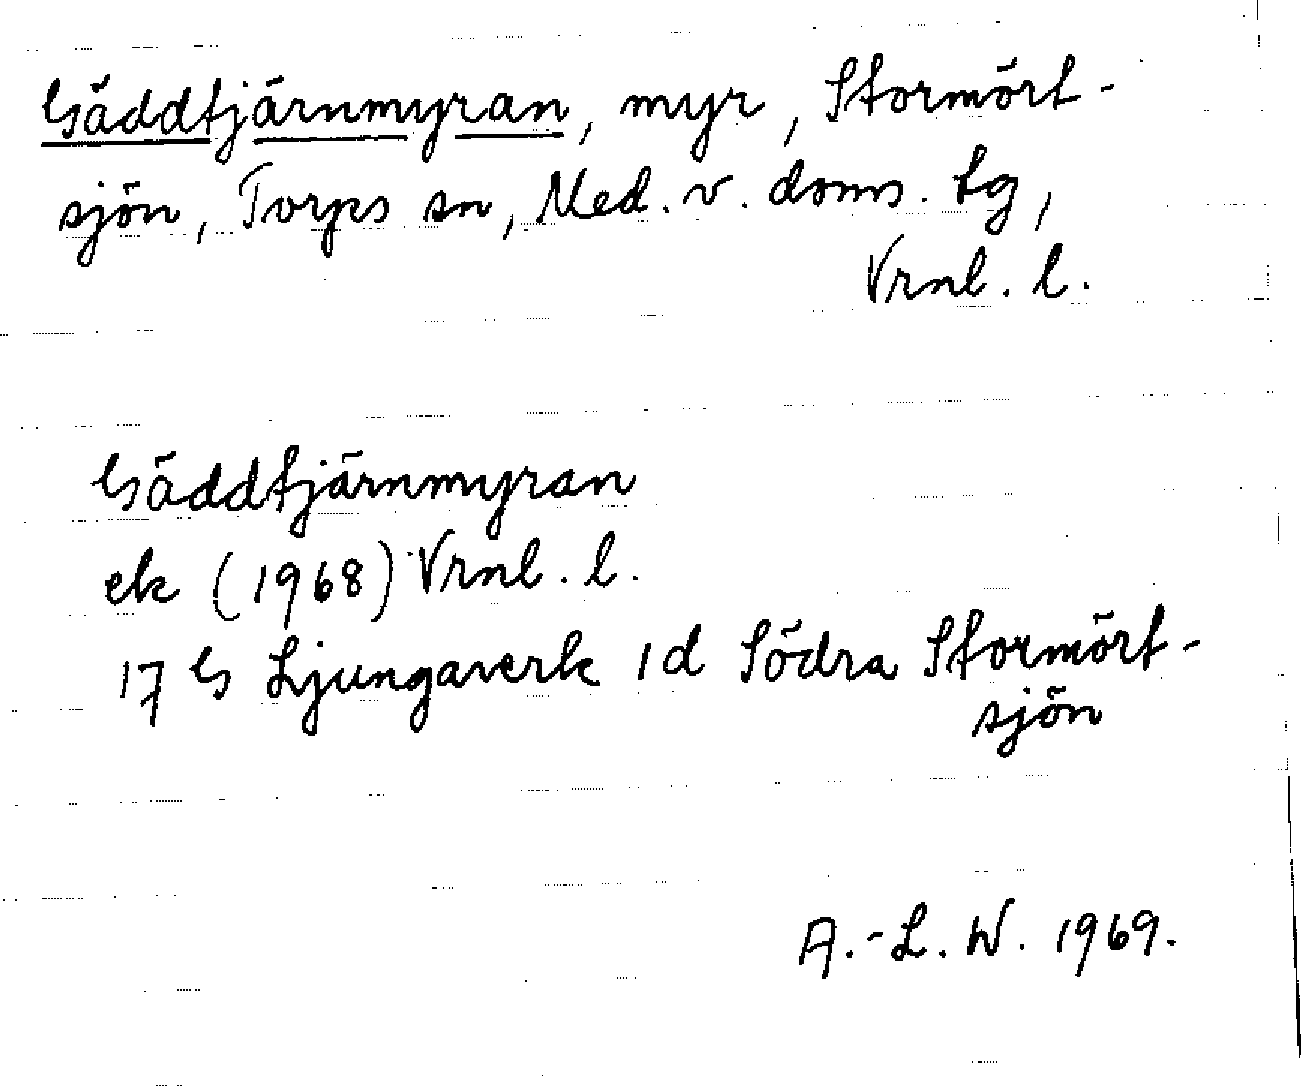 Gäddtjärnmyran, myr, Stormört-
sjön, Torps sn, Med. v. doms. tg,
Vrnl. l.
Gäddtjärnmyran
ek (1968) Vrnl. l.
17 G Ljungaverk 1d Södra Stormört-
sjön
A.-L. W. 1969.